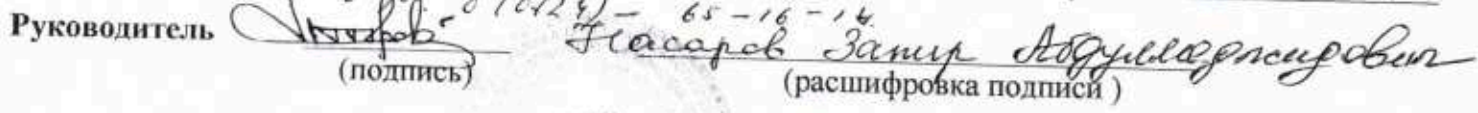 65-16-14
Руководитель Насаров Запир Абдулмаджидович
(подпись) (расшифровка подписи )